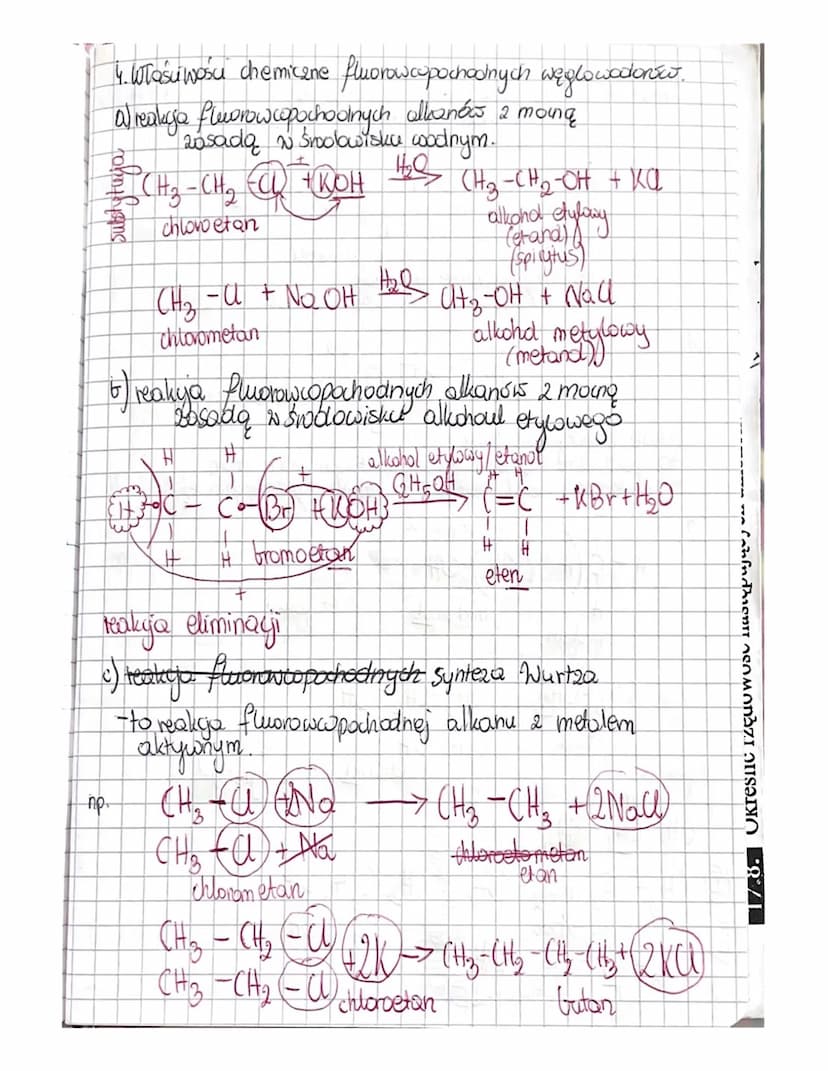 4. Właściwości chemiczne fluorowcopochodnych węglowodorów.
a) reakcja fluorowcopochodnych alkanów z mocną
zasadą w środowisku wodnym.
substytucja
CH3-CH2-Cl + KOH H2O → CH3-CH2-OH + KCl
chloroetan
alkohol etylowy
(etanol)
(spirytus)
CH3-Cl + NaOH H2O → CH3-OH + NaCl
chlorometan
alkohol metylowy
(metanol)
b) reakcja fluorowcopochodnych alkanów z mocną
zasadą w środowisku alkoholu etylowego
alkohol etylowy/etanol
H H
H-C-C-Br + KOH C2H5OH → C=C + KBr + H2O
H H bromoetan
H H
H H
eten
+
reakcja eliminacji
c) reakcja fluorowcopochodnych synteza Wurtza
- to reakcja fluorowcopochodnej alkanu z metalem
aktywnym.
np. CH3-Cl +2Na → CH3-CH3 + 2NaCl
CH3-Cl + Na
chlorometan
etan
CH3-CH2-Cl
+2K → CH3-CH2-CH2-CH3 + 2KCl
CH3-CH2-Cl
chloroetan
butan
17.8. Określić rzędowość następujących